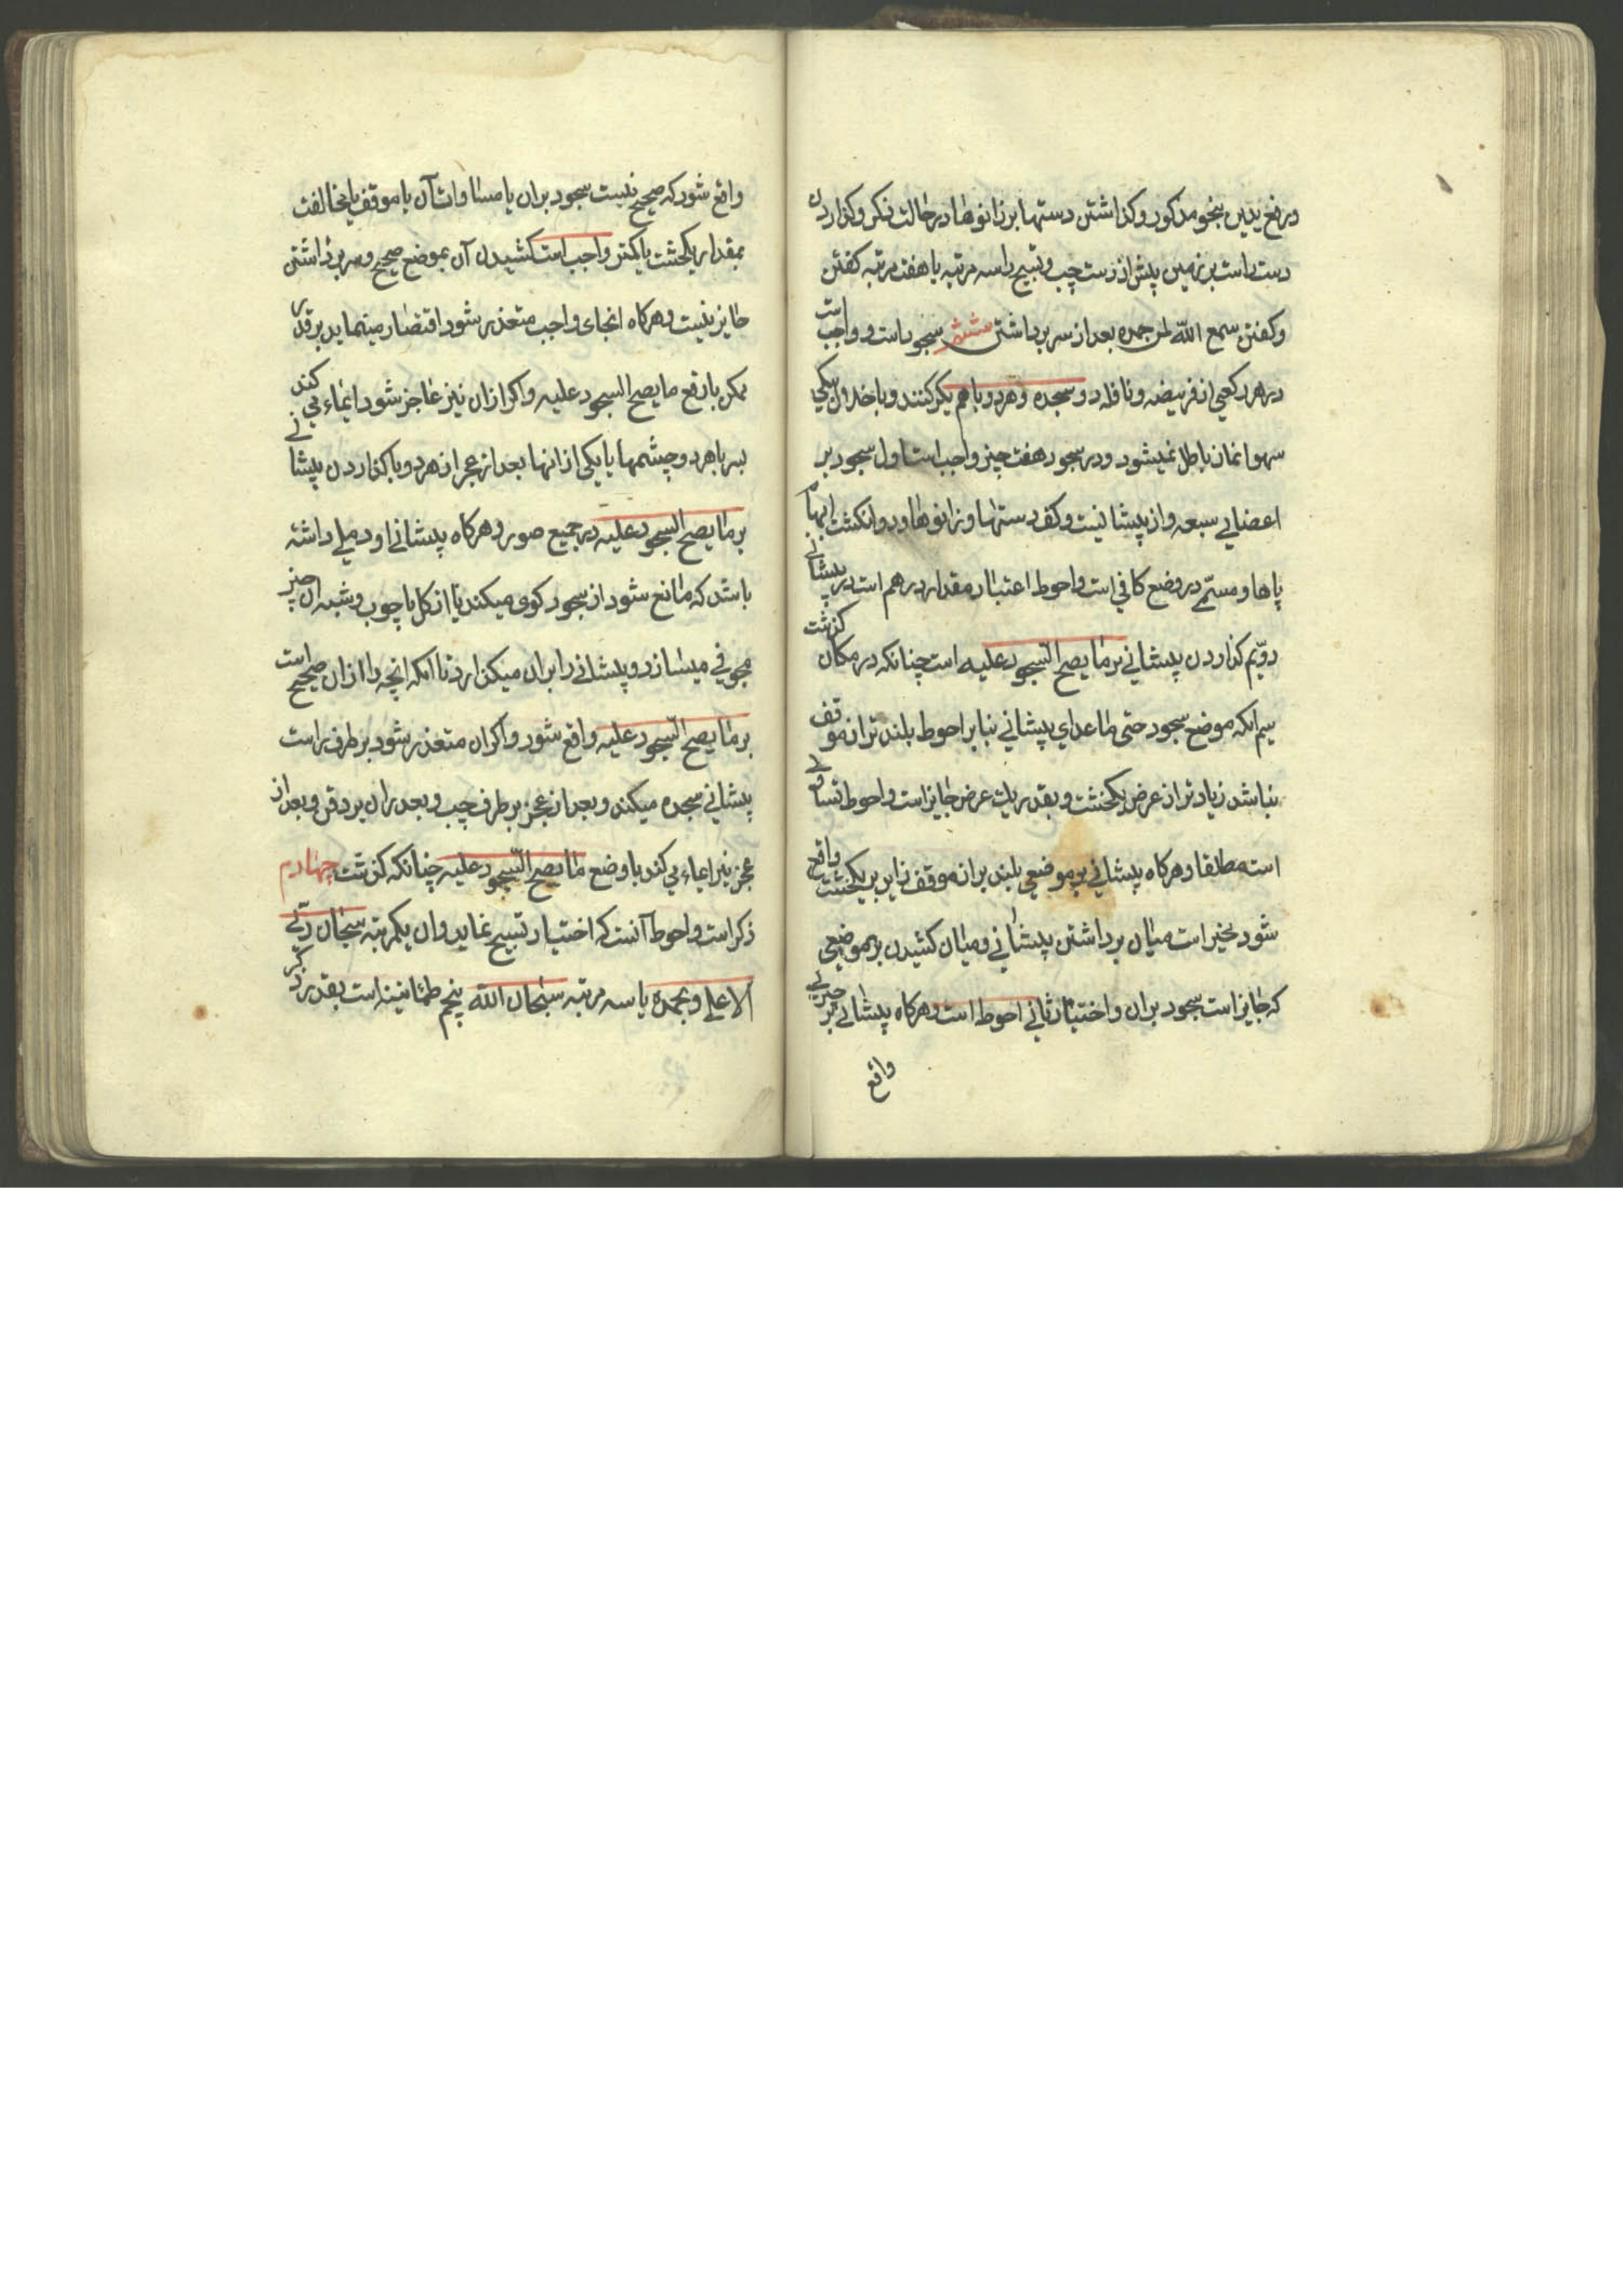 در رفع یدین بنحو مذکور و کذاشتن دستها بر زانوها در حالت ذکر و کذاردن
دست راست بر زمین پیش از دست چپ و تسبیح را سه مرتبه یا هفت مرتبه کفتن
و کفتن سمع الله لمن حمده بعد از سر برداشتن ششم سجود است و واجب است
در هر رکعتی از فریضه و نافله دو سجده و هر دو با هم رکن کنند و باخلال یکی
سهوا نماز باطل نمیشود و در سجود هفت چیز واجب است اول سجود بر
اعضای سبعه و از پیشانیست و کف دستها و زانوها و دو انکشت ابهام
پاها و مسمّی در وضع کافی است و احوط اعتبار مقدار درهم است در پیشانی
دویّم کذاردن پیشانی بر ما یصح السّجود علیه است چنانکه در مکان کذشت
سیم انکه موضع سجود حتی ماعدای پیشانی بنابر احوط بلندتر از موقف
نباشد زیادتر از عرض یکخشت و بقدر یک عرض جایز است و احوط تساوی
است مطلقا و هرکاه پیشانی بر موضعی بلندتر از موقف زاید بر یکخشت واقع
شود مخیر است میان برداشتن پیشانی و میان کشیدن بر موضعی
که جایز است سجود بران و اختیار ثانی احوط است و هرکاه پیشانی بر چیزی
واقع
واقع شود که صحیح نیست سجود بران با مساوات آن با موقف یا مخالفت
بمقدار یکخشت یا کمتر واجب است کشیدن آن بموضع صحیح و سر برداشتن
جایز نیست و هرکاه انحنای واجب متعذر شود اقتصار مینماید بر قدر
ممکن با رفع ما یصح السجود علیه و اکر ازان نیز عاجز شود ایماء می کند
بسر یا هر دو چشمها یا یکی از انها بعد از عجز از هر دو با کذاردن پیشانی
بر ما یصح السجود علیه در جمیع صور و هرکاه پیشانی او دملی داشته
باشد که مانع شود از سجود کوی میکند یا از کل یا چوب و شبه آن چیز
مجوفی میسازد و پیشانی را بران میکذارد تا انکه انچه را ازان صحیح است
بر ما یصح السّجود علیه واقع شود و اکر ان متعذر شود بر طرف راست
پیشانی سجده میکند و بعد از عجز بر طرف چپ و بعد ازان بر ذقن و بعد از
عجز نیز ایماء می کند با وضع ما یصح السّجود علیه چنانکه کذشت چهارم
ذکر است و احوط آنست که اختیار تسبیح نماید و ان یکمرتبه سبحان ربّی
الاعلی و بحمده یا سه مرتبه سبحان الله پنجم طمانینه است بقدر ذکر